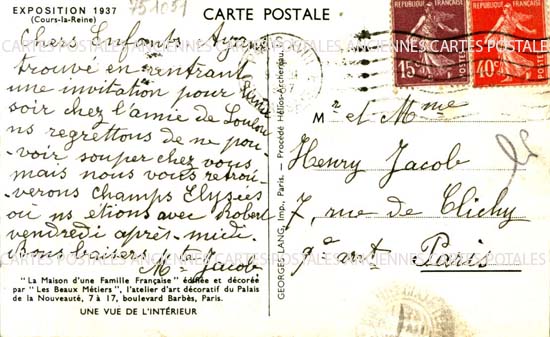 EXPOSITION 1937
(Cours-la-Reine)
751031
CARTE POSTALE
Chers Enfants Ayant
trouvé en rentrant
une invitation pour Lundi
soir chez l'amie de Loulou
ns regrettons de ne pou-
voir souper chez vous
mais nous vous retrou-
verons Champs Elysées
où ns étions avec Robert
vendredi après-midi.
Bons baisers
Jacob
"La Maison d'une Famille Française" éditée et décorée
par "Les Beaux Métiers", l'atelier d'art décoratif du Palais
de la Nouveauté, 7 à 17, boulevard Barbès, Paris.
UNE VUE DE L'INTÉRIEUR
GEORGES LANG, Imp., Paris. - Procédé Hélios-Archereau.
REPUBLIQUE FRANÇAISE
15c
POSTES
REPUBLIQUE FRANÇAISE
40c
POSTES
Mr et Mme
Henry Jacob
7, rue de Clichy
9e art Paris
CARTES POSTALES ANCIENNES